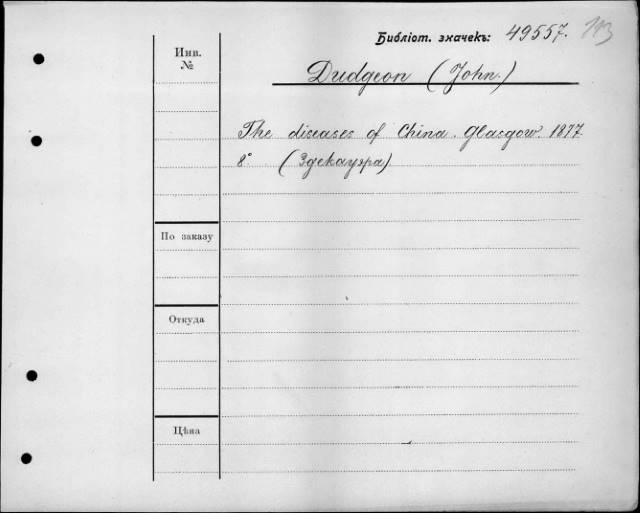 Библіот. значекъ: 49557. 113
Инв.
№
Dudgeon (John.)
The diseases of China. Glasgow. 1877
8° (Здекауэра)
По заказу
Откуда
Цѣна